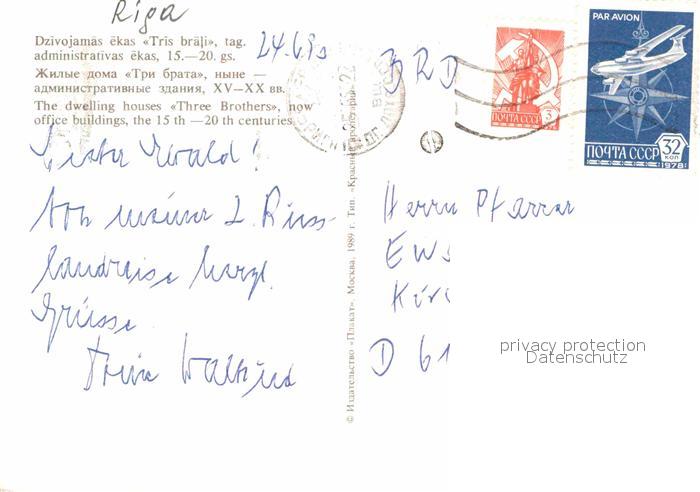 Riga
Dzīvojamās ēkas «Trīs brāļi», tag.
administratīvas ēkas, 15.—20. gs.
Жилые дома «Три брата», ныне —
административные здания, XV—XX вв.
The dwelling houses «Three Brothers», now
office buildings, the 15 th —20 th centuries
Lieber Ewald!
Von meiner 2. Russ-
landreise herzl.
Grüsse
Dein
BRD
Herrn Pfarrer
Ew
D 61
© Издательство «Плакат». Москва. 1989 г. Тип. «Красный пролетарий»
ПОЧТА СССР 3
PAR AVION
ПОЧТА СССР 32 КОП
1978
privacy protection
Datenschutz